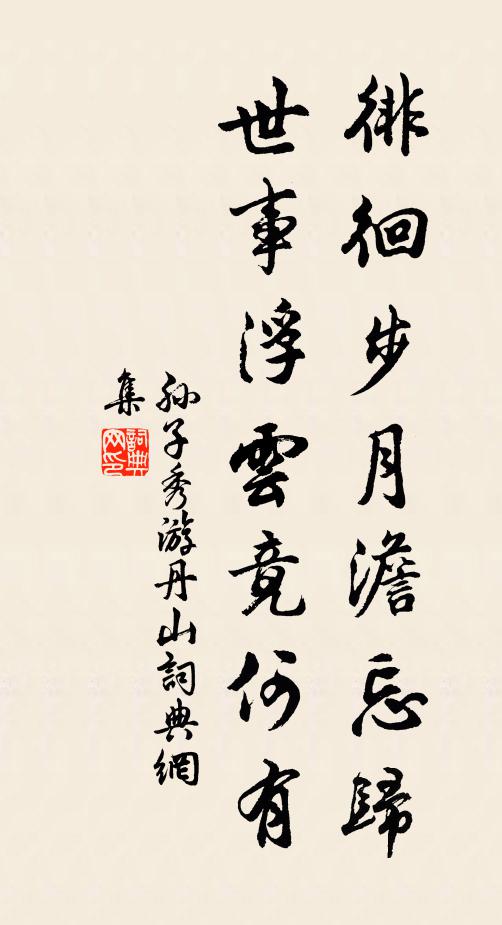 徘徊步月澹忘歸
世事浮雲竟何有
孫子秀游丹山詞典網
集
詞典网印